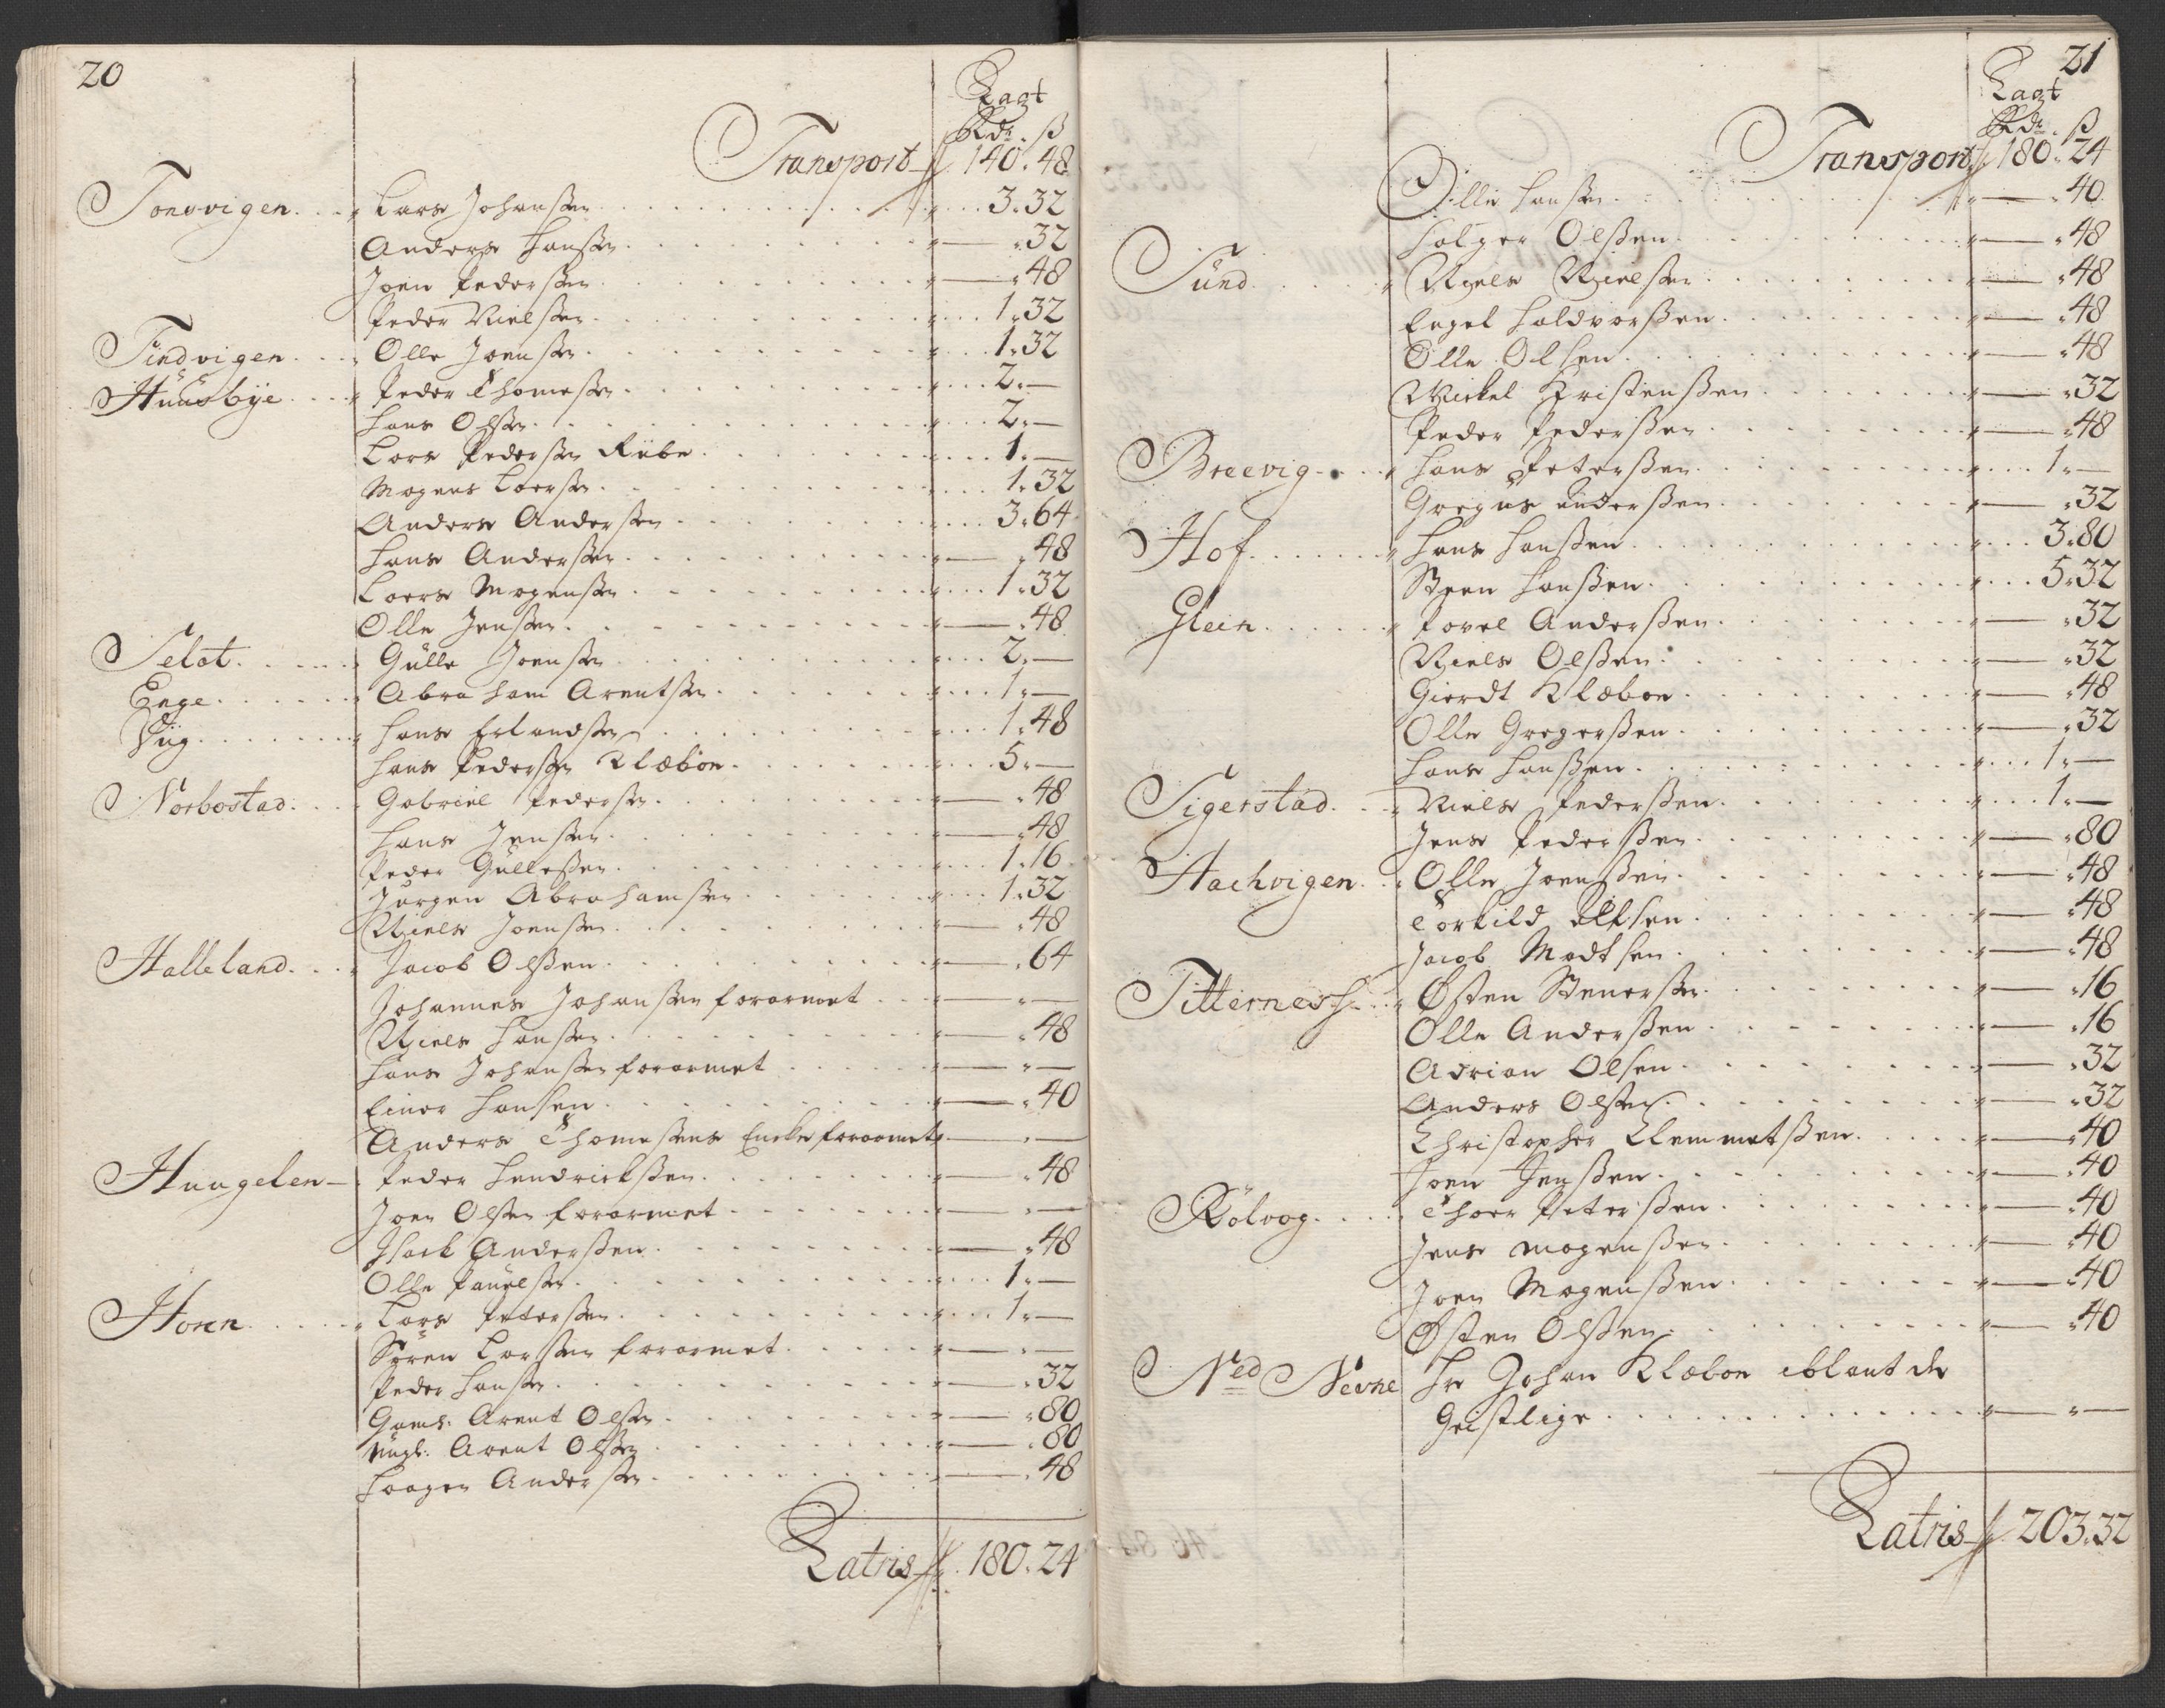 20
Lagt
Rdr. ß
Transport 140. 48
Tonsvigen. Lars Johanßen 3. 32
Anders Hanßen 32
Joen Pederßen 48
Peder Nielßen 1. 32
Tindvigen Olle Joenßen 1. 32
Huusbÿe Peder Thomeßen 2. —
Hans Olßen 2. —
Lars Pederßen Riibe 1. —
Mogens Laerßen 1. 32
Anders Anderßen 3. 64
Hans Anderßen 48
Laers Mogenßen 1. 32
Olle Jenßen 48
Selot Gulle Joenßen 2. —
Enge Abraham Arentßen 1. —
Viig Hans Erlandßen 1. 48
Hans Pederßen Klæboe 5. —
Norbostad Gabriel Pederßen 48
Hans Jenßen 48
Peder Gulleßen 1. 16
Jørgen Abrahamßen 1. 32
Niels Joenßen 48
Halleland Jacob Olßen 64
Johannes Johanßen forarmet —
Niels Hanßen 48
Hans Johanßen forarmet —
Einer Hansen 40
Anders Thomeßens Encke forarmet —
Hungelen Peder Hendrichßen 48
Joen Olßen forarmet —
Isach Anderßen 48
Olle Pauelßen 1. —
Horen Lars Peterßen 1. —
Søren Larßen forarmet —
Peder Hanßen 32
Gaml: Arent Olßen 80
Ungl: Arent Olßen 80
Haagen Anderßen 48
Latris 180. 24
21
Lagt
Rdr. ß
Transport 180. 24
Olle Hanßen 40
Holger Olßen 48
Sund Niels Nielßen 48
Engel Haldvorßen 48
Olle Olsen 48
Mickel Kristenßen 32
Peder Pederßen 48
Breevig Hans Peterßen 1. —
Gregus Anderßen 32
Hof Hans Hanßen 3. 80
Steen Hanßen 5. 32
Glein Povel Anderßen 32
Niels Olßen 32
Gierdt Klæboe 48
Olle Gregerßen 32
Hans Hanßen 1. —
Sigerstad Niels Pederßen 1. —
Jens Pederßen 80
Hachvigen Olle Joenßen 48
Torkild Olsen 48
Jacob Madtsen 48
Titternes Østen Stenerßen 16
Olle Anderßen 16
Adrian Olsen 32
Anders Olßen 32
Christopher Clemmetßen 40
Joen Jenßen 40
Kølvog Thoer Peterßen 40
Jens Mogenßen 40
Joen Mogenßen 40
Østen Olßen 40
Ned Nevne Hr Johan Klæboe iblant de
Geistlige —
Latris 203. 32